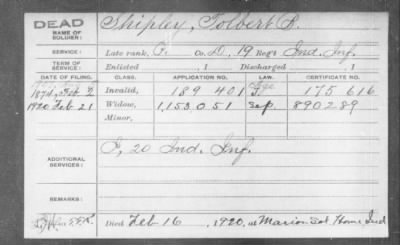 DEAD
NAME OF SOLDIER: Shipley, Tolbert P.
SERVICE: Late rank, P. Co. D, 19 Reg't Ind. Inf.
TERM OF SERVICE: Enlisted , 1 Discharged , 1
DATE OF FILING. CLASS. APPLICATION NO. LAW. CERTIFICATE NO.
1874, Feb 2 Invalid, 189 401 175 616
1920 Feb 21 Widow, 1,153,051 Sep. 890289
Minor,
ADDITIONAL SERVICES: I, 20 Ind. Inf.
REMARKS:
Died Feb 16, 1920, at Marion Sol. Home Ind